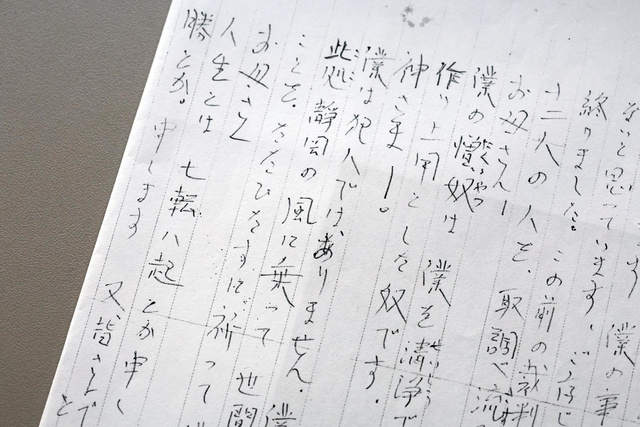 ます 僕の事
ないと思っています。
終りました。この前の裁判
十二人の人を、取調べ流
お母さん！
僕の憎奴は 僕を清浄で
にくいやつ
作り上用とした奴です。
神さまー。
僕は犯人では、ありません。僕
此処静岡の風に乗って 世間
ことを、ただひたすらに祈って
お母さん
人生とは 七転八起とか申し
勝とか。申します 又、皆さんで
と